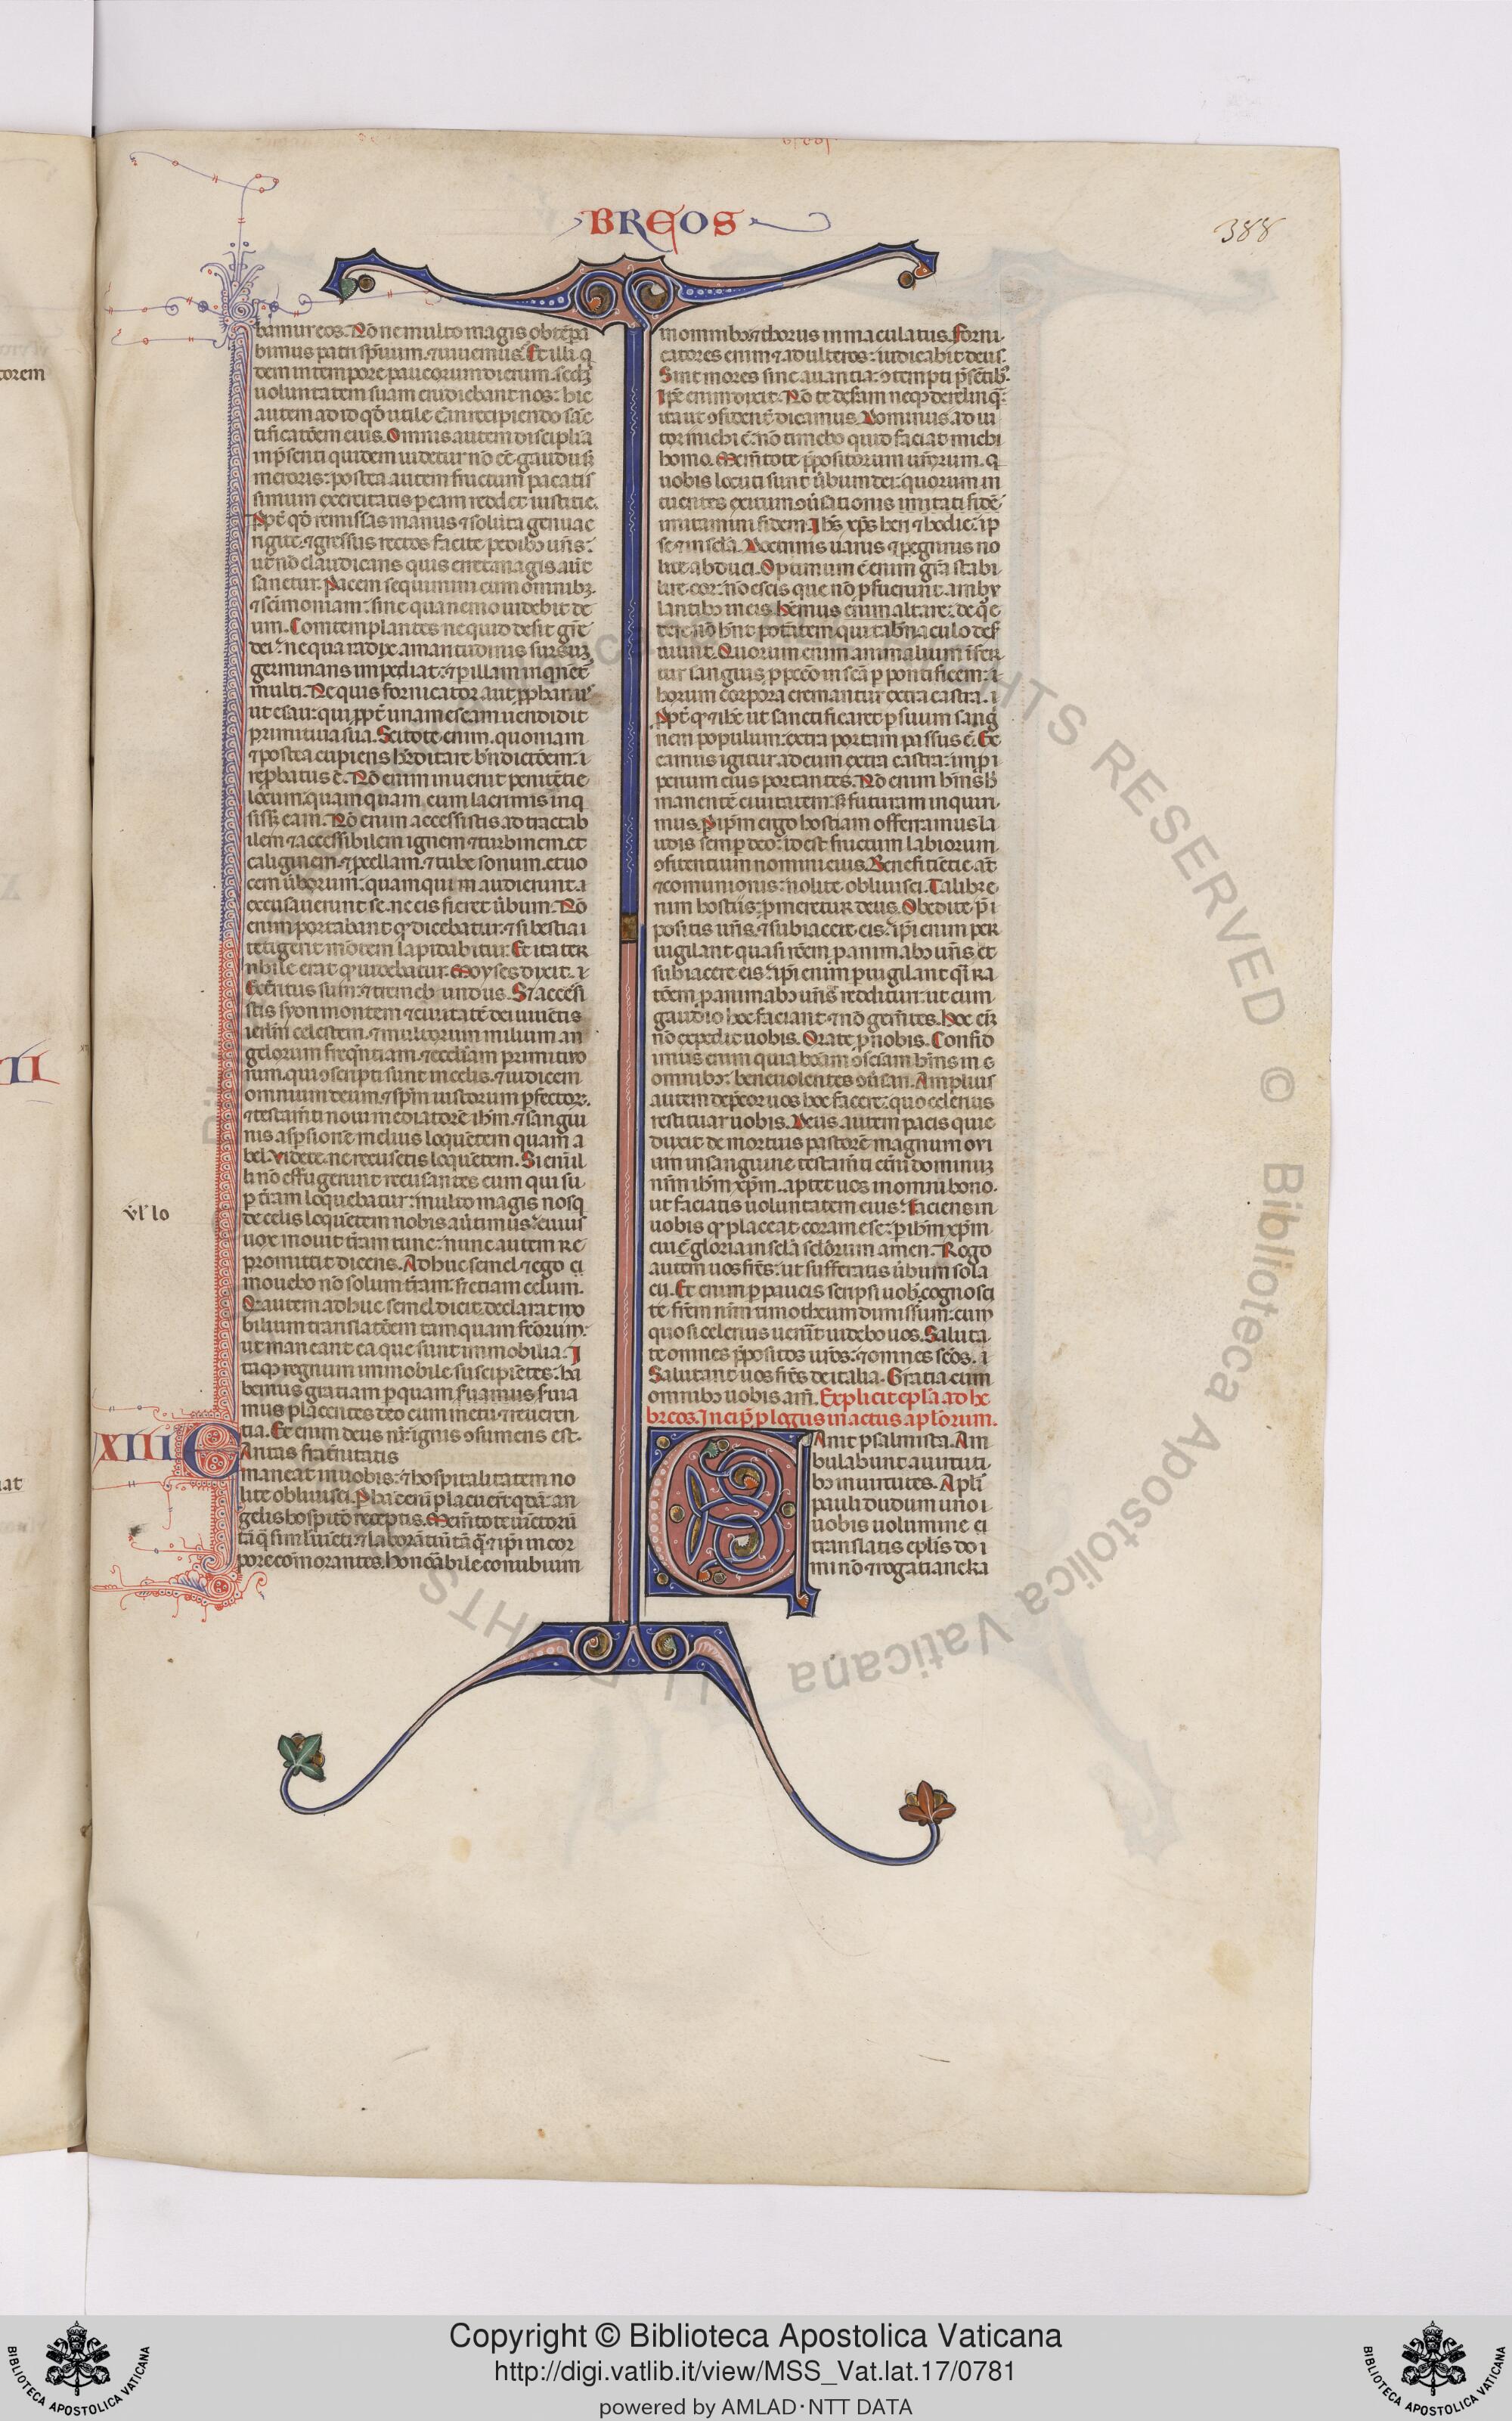 BREOS
388
bamur eos. Nō ne multo magis obtēpa
bimus patri sp̄uum. ⁊ uiuemus. Et illi q̇
dem in tempore paucorum dierum. scdꝫ
uoluntatem suam erudiebant nos: hic
autem ad id qđ utile ē in recipiendo sāc
tificatōem eius. Omnis autem disciplīa
in p̄senti quidem uidetur nō eē gaudiꝫ
meroris: postea autem fructum pacatis
simum exercitatis p eam reddet iustitie.
Ppt̄ qđ remissas manus ⁊ soluta genua e
rigite. ⁊ gressus rectos facite pedibꝫ ur̄is:
ut nō claudicans quis erret. magis aūt
sanetur. Pacem sequimini cum omnibꝫ.
⁊ scīmoniam: sine qua nemo uidebit de
um. Comtemplantes ne quid desit gr̄e
dei: ne qua radix amaritudinis sursuꝫ
germinans impediat. ⁊ p illam inquiēt
multi. Ne quis fornicator aut pphanꝰ
ut esau: qui ppt̄ unam escam uendidit
primitiua sua. Scitote enim. quoniam
⁊ postea cupiens hēditare bn̄dictōem: i
rep̄batus ē. Nō enim inuenit penitētie
locum. quam quam. cum lacrimis inq̇
sisꝫ eam. Nō enim accessistis ad tractab
ilem ⁊ accessibilem ignem ⁊ turbinem. et
caliginem. ⁊ pcellam. ⁊ tube sonum. et uo
cem ūborum: quam qui m audierunt. i
excusauerunt se. ne eis fieret ūbum. Nō
enim portabant qđ dicebatur. ⁊ si bestia i
tetigerit mōtem lapidabitur. Et ita ter
ribile erat qđ uidebatur. Moyses dixit. i
Exteritus sum: ⁊ tremeb undus. Sꝫ accessi
stis syon montem ⁊ ciuitatē dei uiuētis
ierl̄m celestem. ⁊ multorum milium an
gelorum freq̄ntiam. ⁊ eccl̄iam primitiuo
rum. qui ꝯscripti sunt in celis. ⁊ iudicem
omnium deum. ⁊ sp̄m iustorum pfector.
⁊ testam̄ti noui mediatorē ih̄m. ⁊ sangui
nis asp̄sionē melius loquētem quam a
bel. Videte. ne recusetis loquētem. Si enī il
li nō effugerunt recusantes eum qui su
p t̄ram loquebatur: multo magis nos q̇
de celis loquētem nobis aūtimus: cuius
uox mouit t̄ram tunc: nunc autem re
promittit dicens. Adhuc semel ⁊ ego ci
mouebo nō solum t̄ram. sꝫ etiam celum.
Qđ autem adhuc semel dicit. declarat mo
bilium translatōem tam quam fc̄orum:
ut maneant ea que sunt immobilia. I
taqꝫ regnum immobile suscipiētes: ha
bemus gratiam p quam suamus suia
mus placentes deo cum metu ⁊ reueren
tia. Et enim deus nr̄. ignis ꝯsumens est.
XIII
CAritas frat̄nitatis
maneat in uobis: ⁊ hospitalitatem no
lite obliuisci. P hāc enī placuer̄t q̇dā. an
gelis hospitio receptis. Mem̄tote uīctorū
tāq̇ simł uīcti: ⁊ laborātiū tāq̇ ⁊ ip̄i in cor
pore comorantes. honorabile conubium
v̄l lo
in omnibꝫ. ⁊ thorus inmaculatus. Forni
catores enim ⁊ adulteros: iudicabit deus.
Sint mores sine auaritia: ꝯtempti p̄sētibꝫ.
Ip̄e enim dixit. Nō te deseram neqꝫ derelinq̄:
ita ut ꝯfidentē dicamus. Dominus ad iu
tor michi ē: nō timebo quid faciat michi
homo. Mem̄tote p̄positorum ur̄orum. q̇
uobis locuti sunt ūbum dei: quorum in
tuentes exitum ꝯūsationis imitati fidē
imitamini fidem. Ihs̄ xp̄s heri ⁊ hodie: ip
se ⁊ in scl̄a. Doctrinis uariis ⁊ pegrinis no
lite abduci. Optimum ē enim gr̄a stabi
lire cor: nō escis que nō pfuerunt. ambu
lantibꝫ in eis. Hēmus enim altare: de q̇ e
dere nō hn̄t potātem qui tabn̄aculo des
uiunt. Quorum enim animalium īfer
tur sanguis p peccō in scā p pontificem: i
horum corpora cremantur extra castra. i
Ppt̄ qđ ⁊ ihc̄ ut sanctificaret p suum sangi
nem populum: extra portam passus ē. Ex
eamus igitur ad eum extra castra: imp̄i
perium eius portantes. Nō enim hēms h̄
manentē ciuitatem: sꝫ futuram inquiri
mus. P ip̄m ergo hostiam offeramus la
udis semp deo: id est fructum labiorum.
ꝯfitentium nomini eius. Beneficiētie. at̄
⁊ comunionis: nolite obliuisci. Talibꝫ e
nim hostiis: pmeretur deus. Obedite. p̄i
positis ur̄is. ⁊ subiacete eis: ip̄i enim per
uigilant quasi rōem p animabꝫ ur̄is et
subiacete eis: ip̄i enim puigilant q̄i ra
tōem. p animabꝫ ur̄is reddituri: ut cum
gaudio hoc faciant. ⁊ nō gem̄tes. Hoc eīꝫ
nō expedit uobis. Orate p nobis. Confid
imus enim quia bōam ꝯsciam hēms in e
omnibꝫ: beneuolentes ꝯūsari. Amplius
autem depcor uos hoc facere: quo celerius
restituar uobis. Deus autem pacis qui e
duxit de mortuis pastorē magnum oui
um in sanguine testam̄ti et̄ni dominuꝫ
nr̄m ihm̄ xp̄m. aptet uos in omni bono.
ut faciatis uoluntatem eius: faciens in
uobis qđ placeat coram e se: p ihm̄ xp̄m.
cui ē gloria in scl̄a scl̄orum amen. Rogo
autem uos fr̄es: ut sufferatis ūbum sola
cii. Et enim p paucis scripsi uobꝫ. cognosci
te fr̄em nr̄m timotheum dimissum: cum
quo si celerius uenīt uidebo uos. Saluta
te omnes p̄positos ur̄os: ⁊ omnes scōs. i
Salutant uos fr̄es de italia. Gratia cum
omnibꝫ uobis am̄. Explicit epl̄a ad he
breos. Incip̄ p logus in actus apl̄orum.
CAnit psalmista. Am
bulabunt a uirtuti
bꝫ in uirtutes. Apl̄i
pauli dudum uno i
uobis uolumine ci
translatis epl̄is do i
mi nō ⁊ rogatiane ka
Copyright © Biblioteca Apostolica Vaticana
http://digi.vatlib.it/view/MSS_Vat.lat.17/0781
powered by AMLAD·NTT DATA
BIBLIOTECA APOSTOLICA VATICANA
BIBLIOTECA APOSTOLICA VATICANA